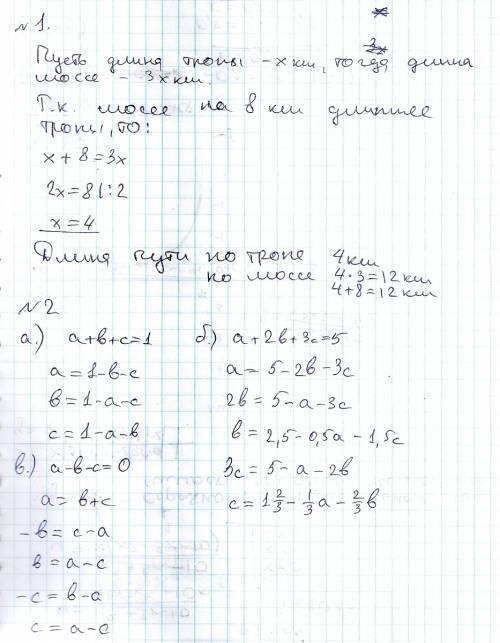 №1.
Пусть длина тропы - x км, тогда длина
шоссе - 3x км.
Т.к. шоссе на 8 км длиннее
тропы, то:
x + 8 = 3x
2x = 8 | : 2
x = 4
Длина пути по тропе 4 км
по шоссе 4·3=12 км
4+8=12 км
№2
а.) a+b+c=1
a=1-b-c
b=1-a-c
c=1-a-b
в.) a-b-c=0
a=b+c
-b=c-a
b=a-c
-c=b-a
c=a-c
б.) a+2b+3c=5
a=5-2b-3c
2b=5-a-3c
b=2,5-0,5a-1,5c
3c=5-a-2b
c=1 2/3 - 1/3 a - 2/3 b